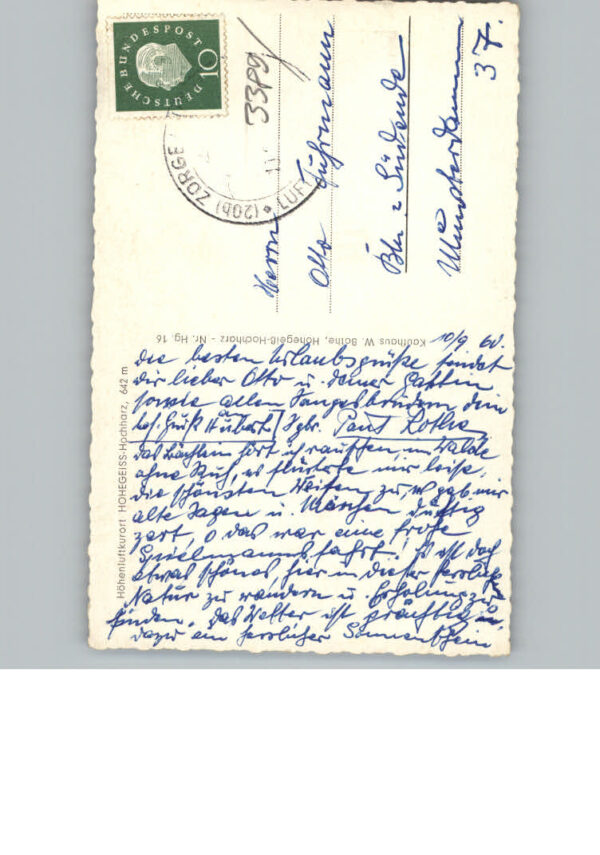 DEUTSCHE BUNDESPOST
10
(20b) ZORGE
LUFT
3389
Herrn
Otto Fuhrmann
Bln - Südende
Münsterdamm
37.
Kaufhaus W. Bothe, Hohegeiß-Hochharz - Nr. Hg. 16
Höhenluftkurort HOHEGEISS-Hochharz, 642 m
10/9 60.
Die besten Urlaubsgrüße sendet
dir lieber Otto u. deiner Gattin
sowie allen Sangesbrüdern dein
Paul Rothe
das Bächlein hört ich rauschen, im Walde
ohne Ruh, es flüsterte mir leise,
die schönsten Weisen zu, es gab mir
alte Sagen u. Märchen duftig
zart, o das war eine frohe
Spielmannsfahrt. Es ist doch
etwas schönes, hier in dieser herrlichen
Natur zu wandern u. Erholung zu
finden. Das Wetter ist prächtig u.
dazu ein herrlicher Sonnenschein